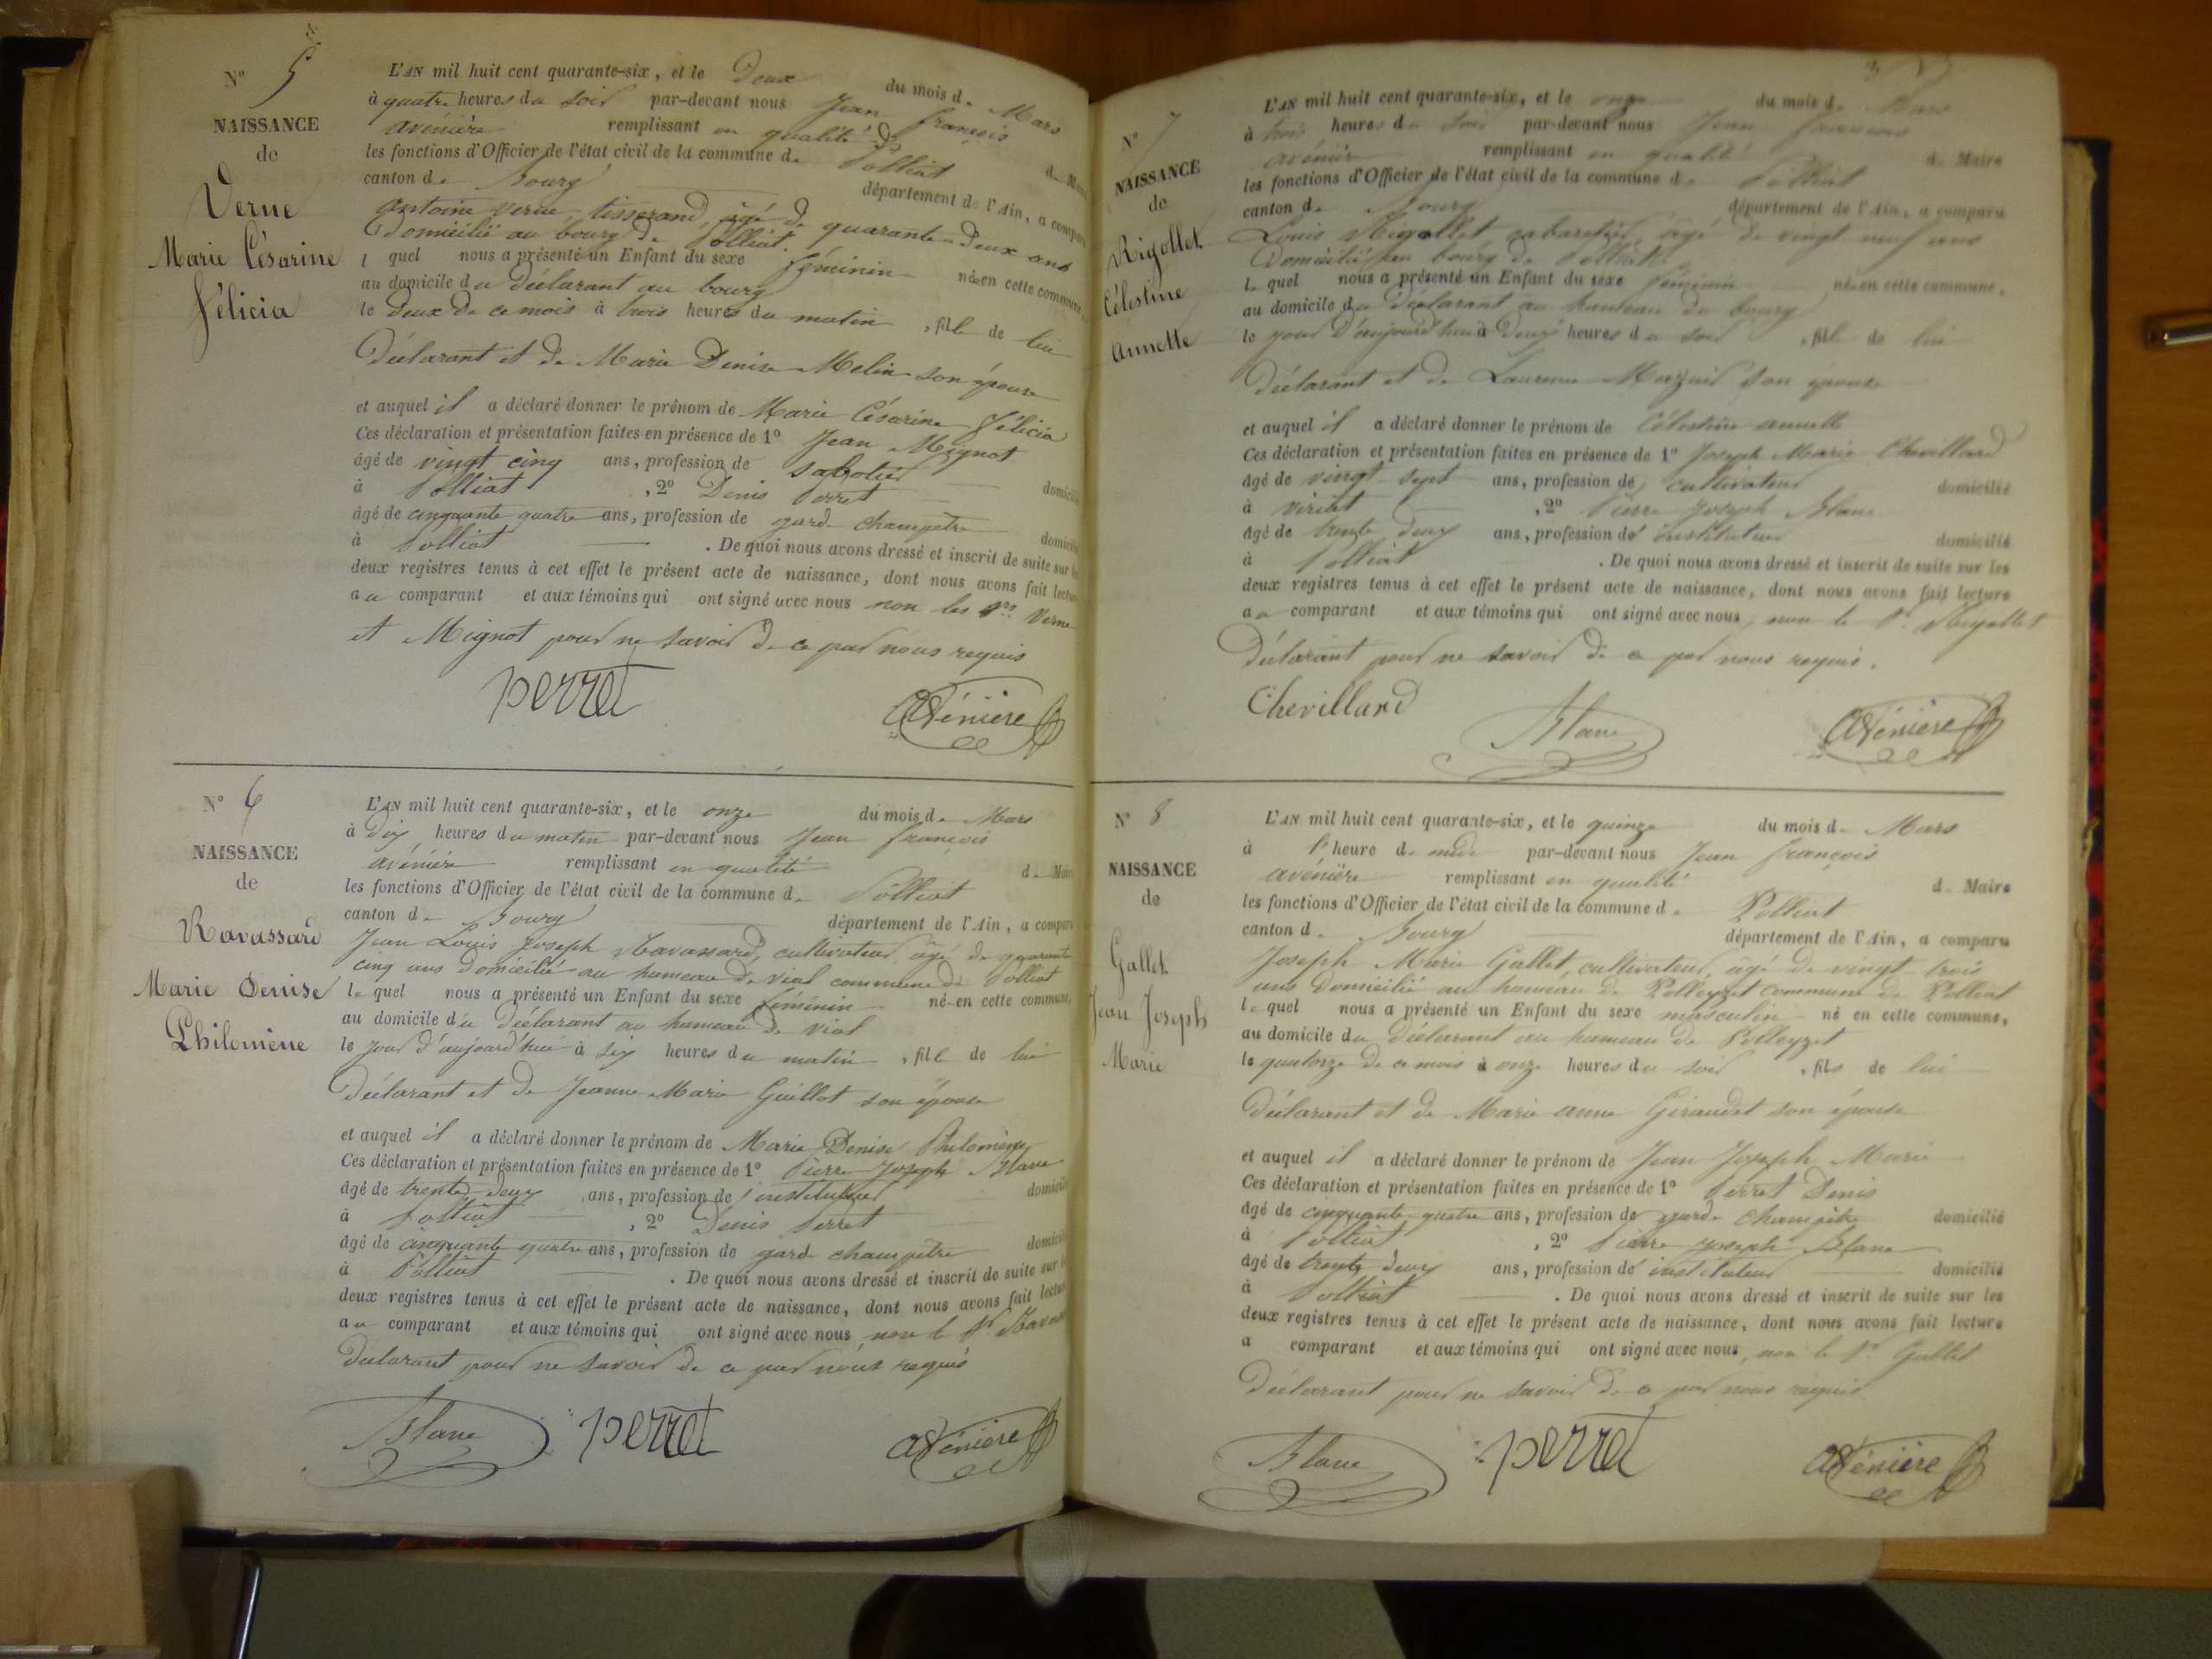 N° 5
NAISSANCE
de
Verne
Marie Césarine
Félicia
L'AN mil huit cent quarante-six, et le Deux du mois de Mars
à quatre heures du soir par-devant nous Jean françois
avénière remplissant en qualité de
les fonctions d'Officier de l'état civil de la commune de Polliat
canton de Bourg département de l'Ain, a comparu
antoine verne, tisserand, âgé de quarante-Deux ans
Domicilié au bourg de Polliat.
l quel nous a présenté un Enfant du sexe féminin née en cette commune,
au domicile du Déclarant au bourg
le Deux de ce mois à trois heures du matin, fille de lui
Déclarant et de Marie Denise Melin son épouse
et auquel il a déclaré donner le prénom de Marie Césarine Félicia
Ces déclaration et présentation faites en présence de 1° Jean Mignot
âgé de vingt cinq ans, profession de sabotier domicilié
à Polliat, 2° Denis Perret
âgé de cinquante quatre ans, profession de garde champêtre domicilié
à Polliat. De quoi nous avons dressé et inscrit de suite sur les
deux registres tenus à cet effet le présent acte de naissance, dont nous avons fait lecture
au comparant et aux témoins qui ont signé avec nous non les Srs Verne
et Mignot pour ne savoir de ce par nous requis
perret
Avénière
N° 6
NAISSANCE
de
Ravassard
Marie Denise
Philomène
L'AN mil huit cent quarante-six, et le onze du mois de Mars
à Dix heures du matin par-devant nous Jean françois
avénière remplissant en qualité de Maire
les fonctions d'Officier de l'état civil de la commune de Polliat
canton de Bourg département de l'Ain, a comparu
Jean Louis Joseph Ravassard, cultivateur, âgé de quarante
cinq ans Domicilié au hameau de vial commune de Polliat
le quel nous a présenté un Enfant du sexe féminin né en cette commune,
au domicile du Déclarant au hameau de vial
le jour d'aujourd'hui à six heures du matin, fille de lui
Déclarant et de Jeanne Marie Guillot son épouse
et auquel il a déclaré donner le prénom de Marie Denise Philomène
Ces déclaration et présentation faites en présence de 1° Pierre Joseph Blanc
âgé de trente deux ans, profession de instituteur domicilié
à Polliat, 2° Denis Perret
âgé de cinquante quatre ans, profession de garde champêtre domicilié
à Polliat. De quoi nous avons dressé et inscrit de suite sur les
deux registres tenus à cet effet le présent acte de naissance, dont nous avons fait lecture
au comparant et aux témoins qui ont signé avec nous non le Sr Ravassard
declarant pour ne savoir de ce par nous requis
Blanc
perret
Avénière
N° 7
NAISSANCE
de
Rigollet
Célestine
annette
L'AN mil huit cent quarante-six, et le onze du mois de Mars
à trois heures du soir par-devant nous Jean francois
avénière remplissant en qualité de Maire
les fonctions d'Officier de l'état civil de la commune de Polliat
canton de Bourg département de l'Ain, a comparu
Louis Rigollet cabaretier, âgé de vingt neuf ans
Domicilié au bourg de Polliat
le quel nous a présenté un Enfant du sexe féminin née en cette commune,
au domicile du Déclarant au hameau du bourg
le jour D'aujourd'hui à Deux heures du soir, fille de lui
Déclarant et de Laurence son épouse
et auquel il a déclaré donner le prénom de Célestine annette
Ces déclaration et présentation faites en présence de 1° Joseph Marie Chevillard
âgé de vingt sept ans, profession de cultivateur domicilié
à viriat, 2° Pierre Joseph Blanc
âgé de trente deux ans, profession de instituteur domicilié
à Polliat. De quoi nous avons dressé et inscrit de suite sur les
deux registres tenus à cet effet le présent acte de naissance, dont nous avons fait lecture
au comparant et aux témoins qui ont signé avec nous, non le Sr Rigollet
Déclarant pour ne savoir de ce par nous requis.
Chevillard
Blanc
Avénière
N° 8
NAISSANCE
de
Gallet
Jean Joseph
Marie
L'AN mil huit cent quarante-six, et le quinze du mois de Mars
à heure de par-devant nous Jean françois
avénière remplissant en qualité de Maire
les fonctions d'Officier de l'état civil de la commune de Polliat
canton de Bourg département de l'Ain, a comparu
Joseph Marie Gallet, cultivateur, âgé de vingt trois
ans Domicilié au hameau de Polleyzet commune de Polliat
le quel nous a présenté un Enfant du sexe masculin né en cette commune,
au domicile du Déclarant au hameau de Polleyzet
le quatorze de ce mois à onze heures du soir, fils de lui
Déclarant et de Marie anne Giraudet son épouse
et auquel il a déclaré donner le prénom de Jean Joseph Marie
Ces déclaration et présentation faites en présence de 1° Perret Denis
âgé de cinquante quatre ans, profession de garde champêtre domicilié
à Polliat, 2° Pierre Joseph Blanc
âgé de trente deux ans, profession de instituteur domicilié
à Polliat. De quoi nous avons dressé et inscrit de suite sur les
deux registres tenus à cet effet le présent acte de naissance, dont nous avons fait lecture
a comparant et aux témoins qui ont signé avec nous, non le Sr Gallet
Déclarant pour ne savoir de ce par nous requis
Blanc
perret
Avénière